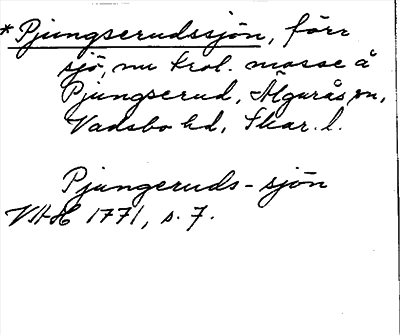 * Pjungserudssjön, förr
sjö, nu trol. mosse å
Pjungserud, Älgarås sn,
Vadsbo hd, Skar. l.
Pjungeruds-sjön
VAH 1771, s. 7.